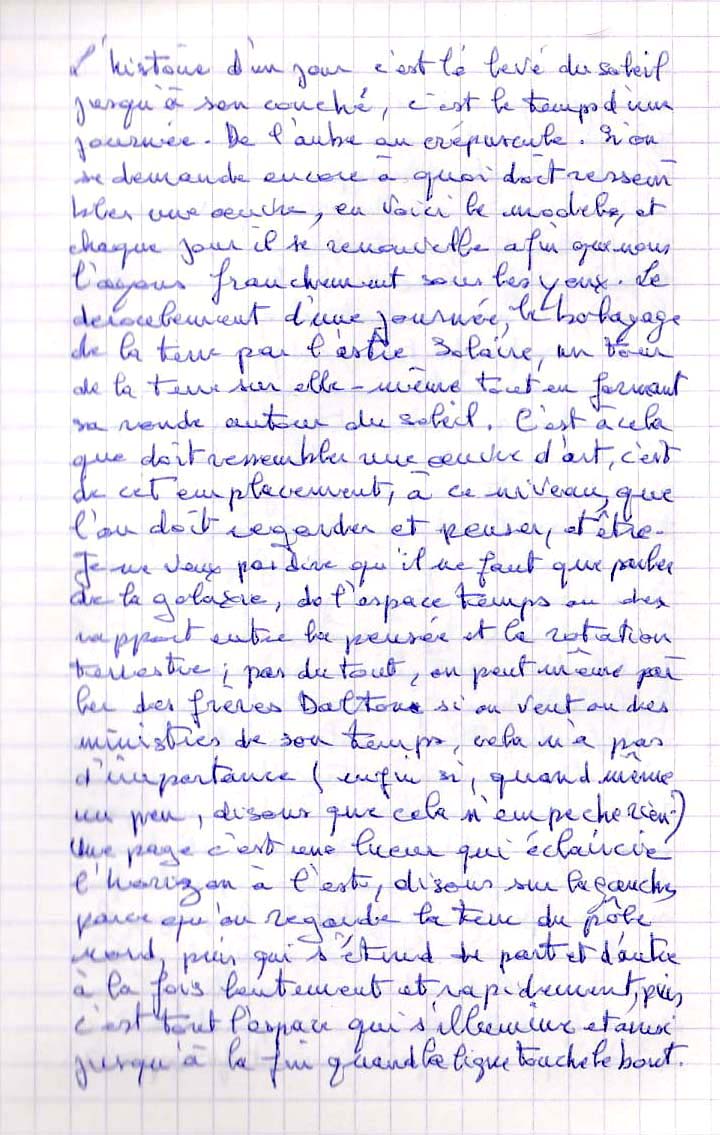 L'histoire d'un jour c'est le levé du soleil
jusqu'à son couché, c'est le temps d'une
journée. De l'aube au crépuscule. Si on
se demande encore à quoi doit ressem
bler une œuvre, en voici le modèle, et
chaque jour il se renouvelle afin que nous
l'ayons franchement sous les yeux. Le
déroulement d'une journée, le balayage
de la terre par l'astre solaire, un tour
de la terre sur elle-même tout en formant
sa ronde autour du soleil. C'est à cela
que doit ressembler une œuvre d'art, c'est
de cet emplacement, à ce niveau, que
l'on doit regarder et penser, et être.
Je ne veux pas dire qu'il ne faut que parler
de la galaxie, de l'espace temps ou des
rapport entre la pensée et la rotation
terrestre ; pas du tout, on peut même par
ler des frères Dalton si on veut ou des
ministres de son temps, cela n'a pas
d'importance (enfin si, quand même
un peu, disons que cela n'empeche rien.)
Une page c'est une lueur qui éclaircie
l'horizon à l'est, disons sur la gauche,
parce qu'on regarde la terre du pôle
nord, puis qui s'étend de part et d'autre
à la fois lentement et rapidement, puis
c'est tout l'espace qui s'illumine et ainsi
jusqu'à la fin quand la ligne touche le bout.